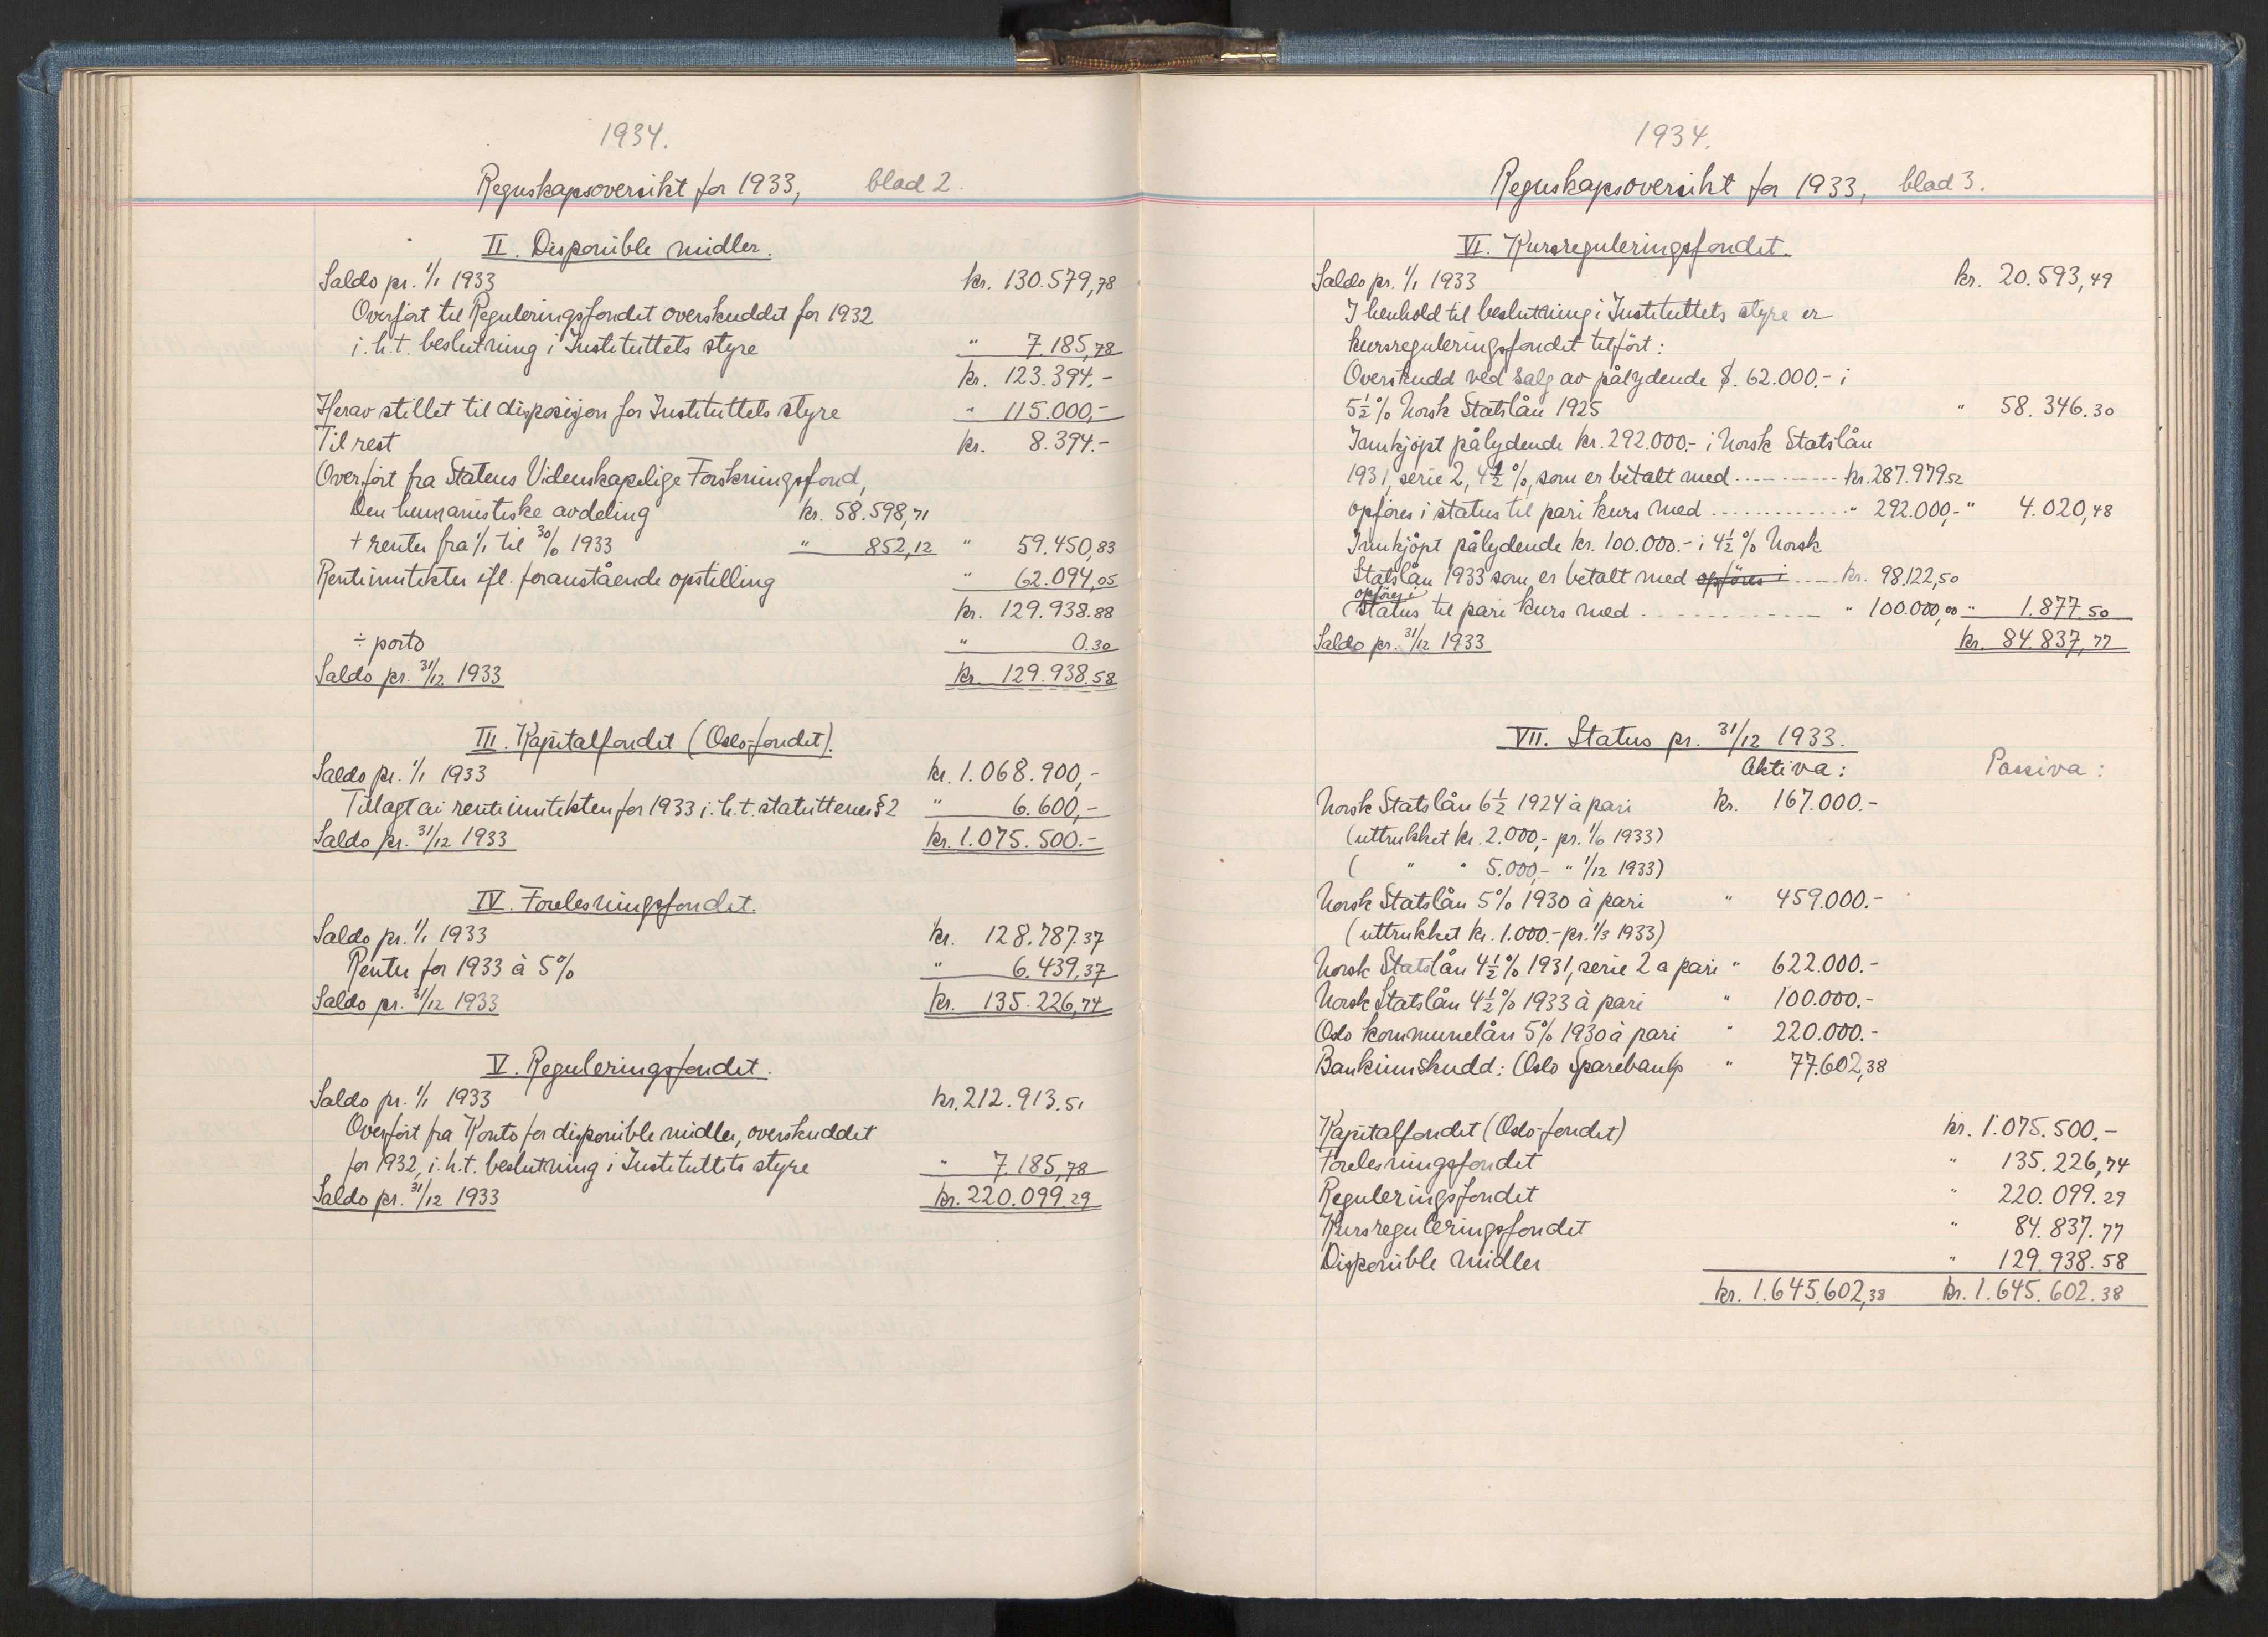 1934.
Regnskapsoversikt for 1933, blad 2.
II. Disponible midler.
Saldo pr. 1/1 1933 kr. 130.579,78
Overført til Reguleringsfondet overskuddet for 1932
i.h.t. beslutning i Instituttets styre " 7.185,78
kr. 123.394.-
Herav stillet til disposisjon for Instituttets styre " 115.000,-
Til rest kr. 8.394.-
Overført fra Statens Videnskapelige Forskningsfond,
Den humanistiske avdeling kr. 58.598,71
+ renter fra 1/1 til 30/6 1933 " 852,12 " 59.450,83
Renteinntekter ifl. foranstående opstilling " 62.094,05
kr. 129.938.88
÷ porto " 0.30
Saldo pr. 31/12 1933 kr. 129.938.58
III. Kapitalfondet (Oslo-fondet).
Saldo pr. 1/1 1933 kr. 1.068.900,-
Tillagt av renteinntekten for 1933 i.h.t. statuttenes § 2 " 6.600,-
Saldo pr. 31/12 1933 kr. 1.075.500.-
IV. Forelesningsfondet.
Saldo pr. 1/1 1933 kr. 128.787.37
Renter for 1933 à 5% " 6.439,37
Saldo pr. 31/12 1933 kr. 135.226,74
V. Reguleringsfondet.
Saldo pr. 1/1 1933 kr. 212.913.51
Overført fra Konto for disponible midler, overskuddet
for 1932, i.h.t. beslutning i Instituttets styre " 7.185,78
Saldo pr. 31/12 1933 kr. 220.099.29
1934.
Regnskapsoversikt for 1933, blad 3.
VI. Kursreguleringsfondet.
Saldo pr. 1/1 1933 kr. 20.593,49
I henhold til beslutning i Instituttets styre er
kursreguleringsfondet tilført:
Overskudd ved salg av pålydende $. 62.000.- i
5½% Norsk Statslån 1925 " 58.346.30
Innkjøpt pålydende kr. 292.000.- i Norsk Statslån
1931, serie 2, 4½%, som er betalt med ---------- kr. 287.979.52
opføres i status til pari kurs med ............. " 292.000,- " 4.020,48
Innkjøpt pålydende kr. 100.000.- i 4½% Norsk
Statslån 1933 som er betalt med opføres i ---- kr. 98.122,50
opføres i
status til pari kurs med ............. " 100.000,00 " 1.877.50
Saldo pr. 31/12 1933 kr. 84.837,77
VII. Status pr. 31/12 1933.
Aktiva: Passiva:
Norsk Statslån 6½ 1924 à pari kr. 167.000.-
(uttrukket kr. 2.000,- pr. 1/6 1933)
( " " 5.000,- " 1/12 1933)
Norsk Statslån 5% 1930 à pari " 459.000.-
(uttrukket kr. 1.000.- pr. 1/3 1933)
Norsk Statslån 4½% 1931, serie 2 a pari " 622.000.-
Norsk Statslån 4½% 1933 à pari " 100.000.-
Oslo kommunelån 5% 1930 à pari " 220.000.-
Bankinnskudd: (Oslo Sparebank) " 77.602,38
Kapitalfondet (Oslo-fondet) kr. 1.075.500.-
Forelesningsfondet " 135.226,74
Reguleringsfondet " 220.099.29
Kursreguleringsfondet " 84.837.77
Disponible midler " 129.938.58
kr. 1.645.602,38 kr. 1.645.602.38